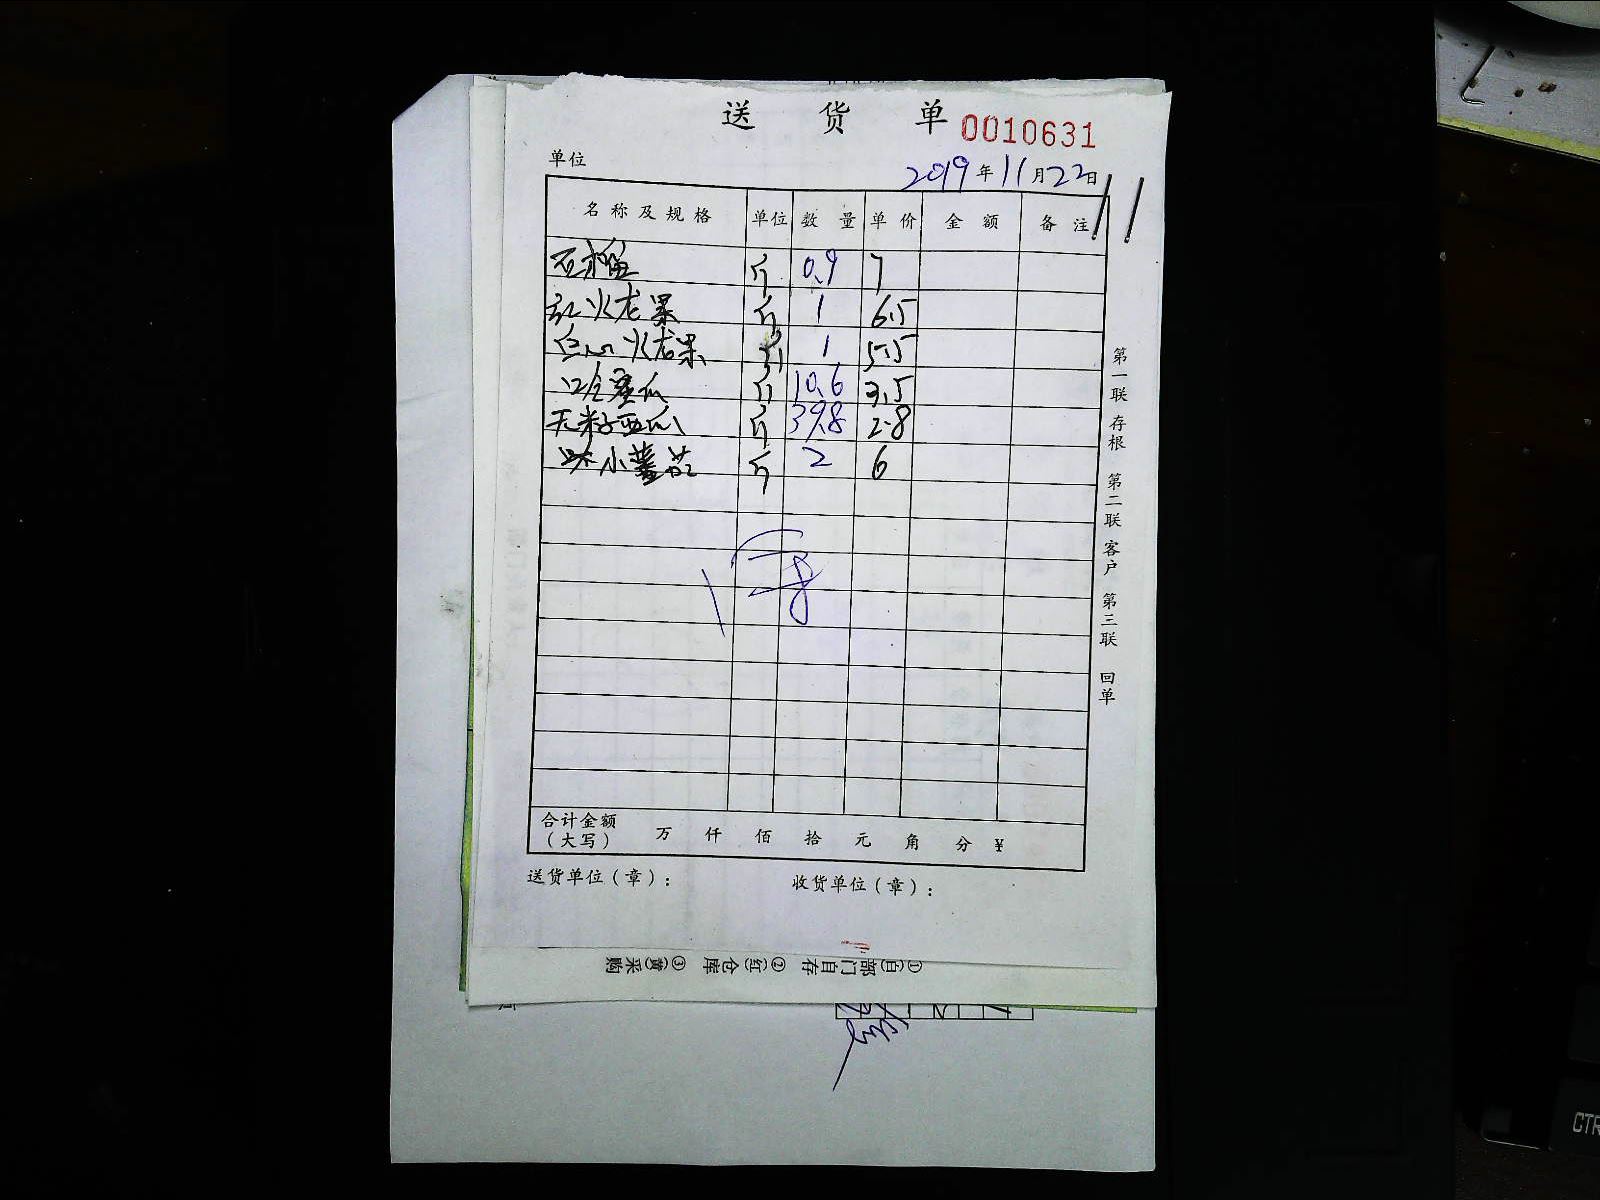 送 货 单 0010631
单位 2019年11月22日
名称及规格 单位 数量 单价 金额 备注
石榴 斤 0.9 7
红火龙果 斤 1 6.5
白心火龙果 斤 1 5.5
哈蜜瓜 斤 10.6 3.5
无籽西瓜 斤 39.8 2.8
小蕃茄 斤 2 6
合计金额
(大写) 万 仟 佰 拾 元 角 分 ¥
送货单位(章): 收货单位(章):
第一联 存根 第二联 客户 第三联 回单
①(白)部门自存 ②(红)仓库 ③(黄)采购